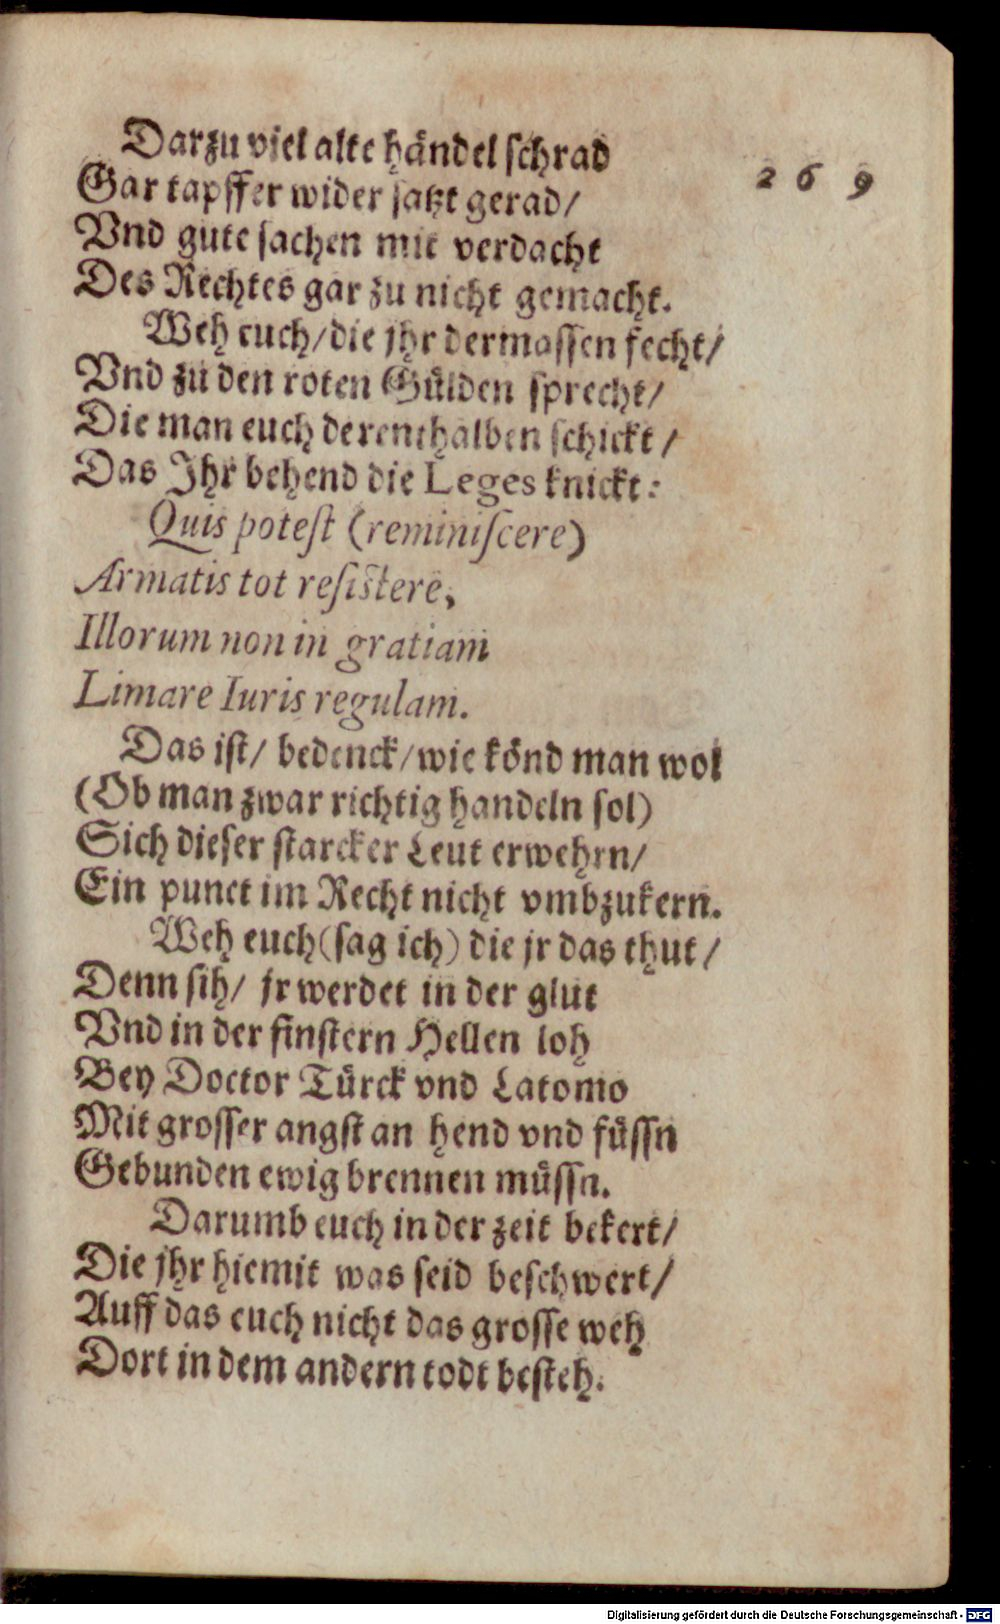 Darzu viel alte händel schrad
269
Gar tapffer wider satzt gerad/
Vnd gute sachen mit verdacht
Des Rechtes gar zu nicht gemacht.
Weh euch/die jhr dermassen fecht/
Vnd zu den roten Gülden sprecht/
Die man euch derenthalben schickt/
Das Jhr behend die Leges knickt:
Quis potest (reminiscere)
Armatis tot resistere,
Illorum non in gratiam
Limare Iuris regulam.
Das ist/ bedenck/wie könd man wol
(Ob man zwar richtig handeln sol)
Sich dieser starcker Leut erwehrn/
Ein punct im Recht nicht vmbzukern.
Weh euch(sag ich) die jr das thut/
Denn sih/ jr werdet in der glut
Vnd in der finstern Hellen loh
Bey Doctor Türck vnd Latomo
Mit grosser angst an hend vnd füssn
Gebunden ewig brennen müssn.
Darumb euch in der zeit bekert/
Die jhr hiemit was seid beschwert/
Auff das euch nicht das grosse weh
Dort in dem andern todt besteh.
Digitalisierung gefördert durch die Deutsche Forschungsgemeinschaft - DFG